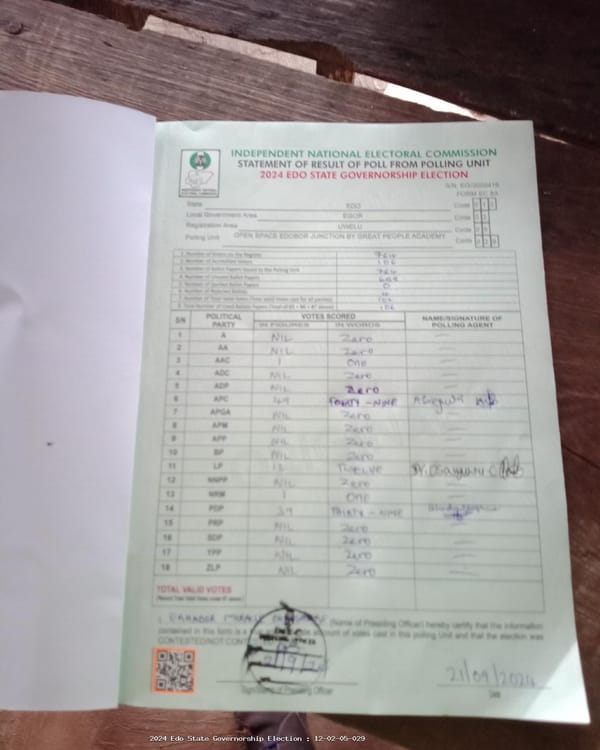 INDEPENDENT NATIONAL ELECTORAL COMMISSION
STATEMENT OF RESULT OF POLL FROM POLLING UNIT
2024 EDO STATE GOVERNORSHIP ELECTION
FORM EC 8A
State EDO Code
Local Government Area EGOR Code
Registration Area UWELU Code
Polling Unit OPEN SPACE EDOBOR JUNCTION BY GREAT PEOPLE ACADEMY Code
1 Number of Voters on the Register 724
2 Number of Accredited Voters 106
3 Number of Ballot Papers Issued to the Polling Unit 724
4 Number of Unused Ballot Papers
5 Number of Spoiled Ballot Papers 0
6 Number of Rejected Ballots
7 Number of Total Valid Votes (Total Valid Votes cast for all parties)
8 Total Number of Used Ballot Papers 106
S/N POLITICAL PARTY VOTES SCORED NAME/SIGNATURE OF POLLING AGENT
IN FIGURES IN WORDS
1 A NIL Zero
2 AA NIL Zero
3 AAC 1 One
4 ADC NIL Zero
5 ADP NIL Zero
6 APC 49 FORTY-NINE
7 APGA NIL Zero
8 APM NIL Zero
9 APP NIL Zero
10 BP NIL Zero
11 LP 12 TWELVE
12 NNPP NIL Zero
13 NRM 1 One
14 PDP 39 THIRTY-NINE
15 PRP NIL Zero
16 SDP NIL Zero
17 YPP NIL Zero
18 ZLP NIL Zero
TOTAL VALID VOTES
I, (Name of Presiding Officer) hereby certify that the information
contained in this form is a account of votes cast in this polling Unit and that the election was
CONTESTED/NOT CONTESTED
21/09/2024
Sign/Stamp of Presiding Officer Date
2024 Edo State Governorship Election : 12-02-05-029